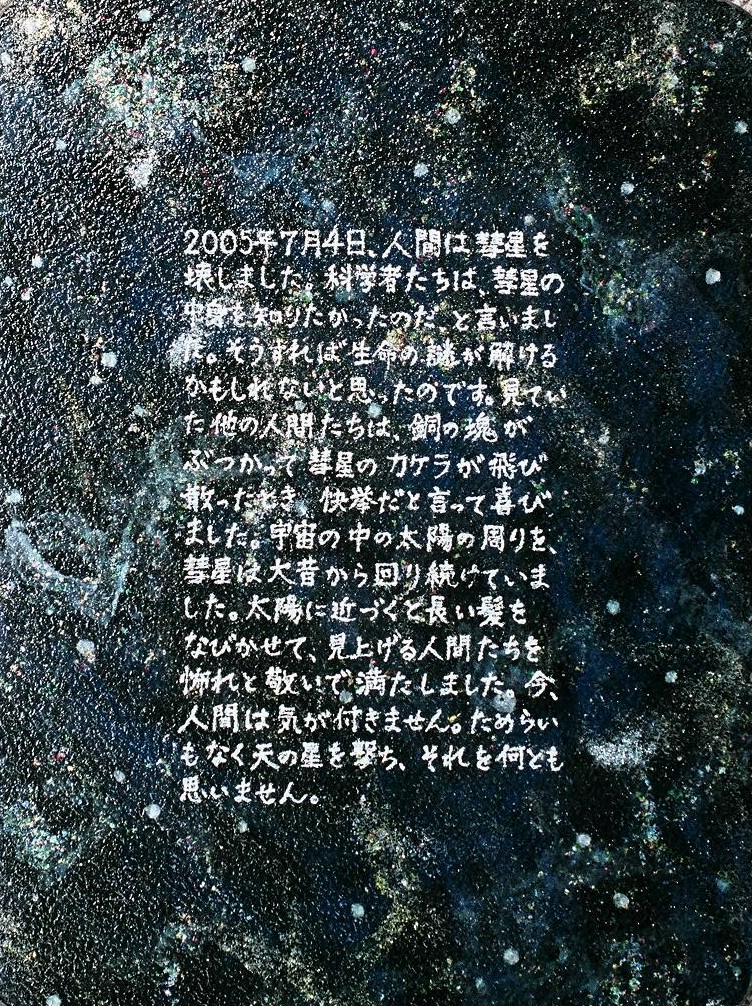 2005年7月4日、人間は彗星を
壊しました。科学者たちは、彗星の
中身を知りたかったのだ、と言いまし
た。そうすれば生命の謎が解ける
かもしれないと思ったのです。見てい
た他の人間たちは、銅の塊が
ぶつかって彗星のカケラが飛び
散ったとき、快挙だと言って喜び
ました。宇宙の中の太陽の周りを、
彗星は大昔から回り続けていま
した。太陽に近づくと長い髪を
なびかせて、見上げる人間たちを
怖れと敬いで満たしました。今、
人間は気が付きません。ためらい
もなく天の星を撃ち、それを何とも
思いません。